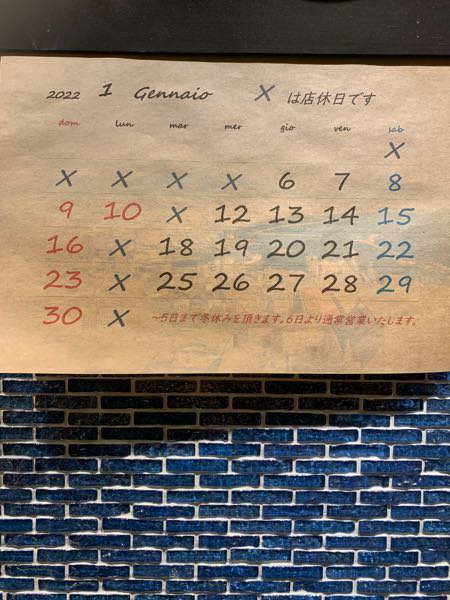 2022 1 Gennaio X は店休日です
dom lun mar mer gio ven sab
X
X X X X 6 7 8
9 10 X 12 13 14 15
16 X 18 19 20 21 22
23 X 25 26 27 28 29
30 X ~5日まで冬休みを頂きます。6日より通常営業いたします。